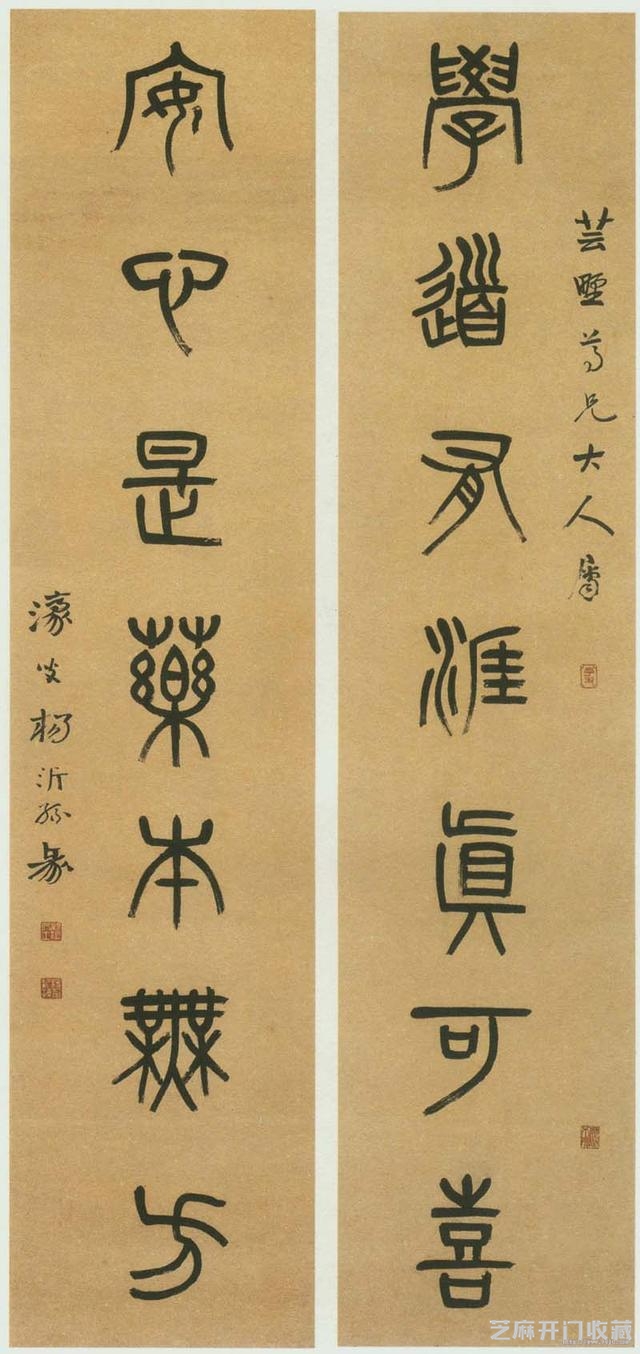 芸墅尊兄大人屬
學道有涯眞可喜
安心是藥本無方
濠叟楊沂孫篆
芝麻开门收藏